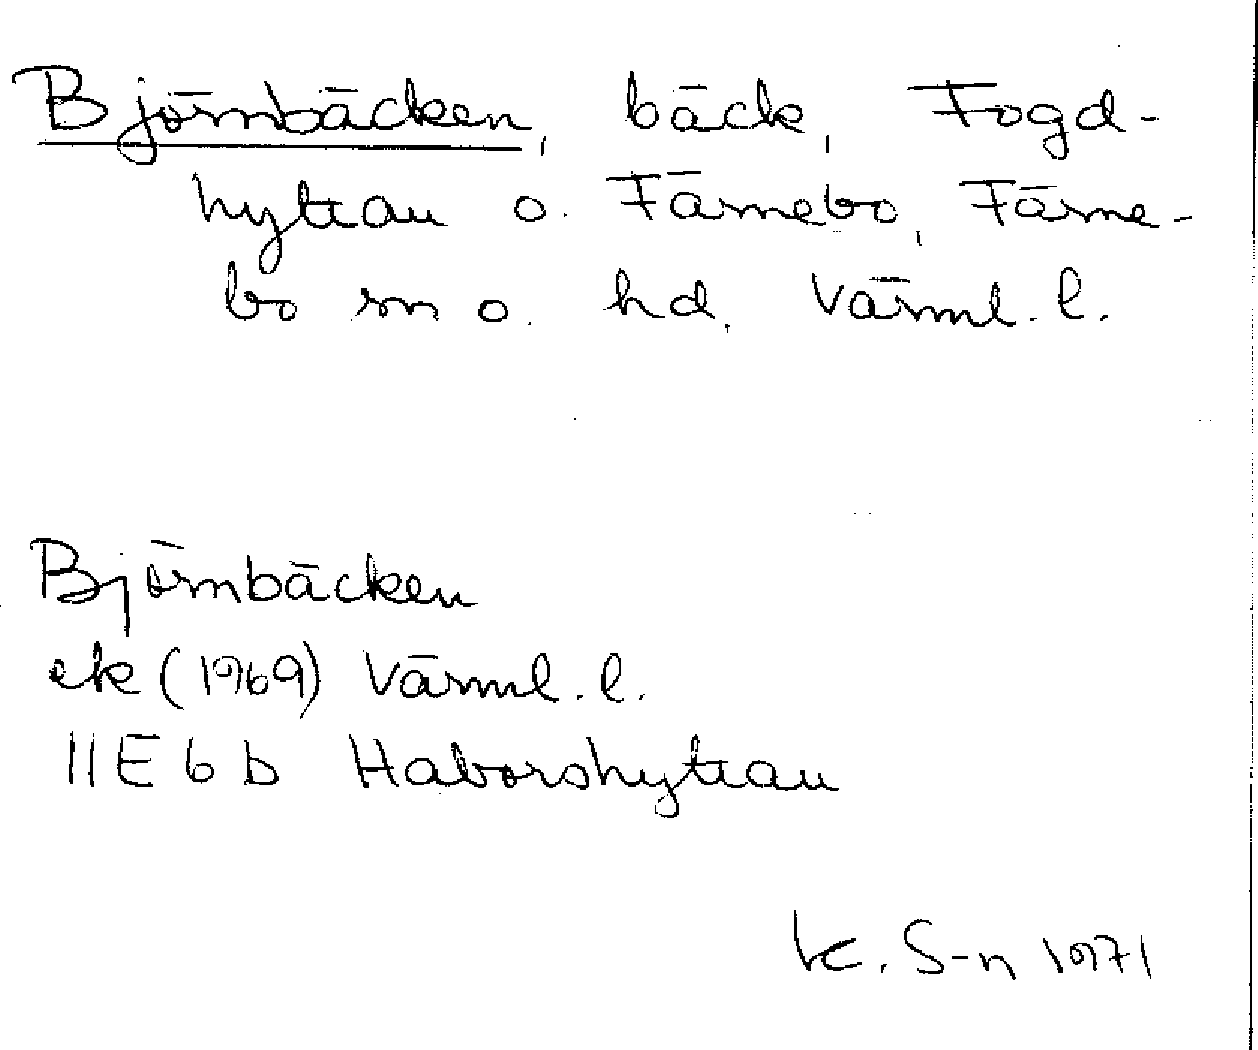 Björnbäcken, bäck, Fogd-
hyttan o. Färnebo, Färne-
bo sn o. hd. Värml. l.
Björnbäcken
ek (1969) Värml. l.
11E 6 b Haborshyttan
K. S-n 1971